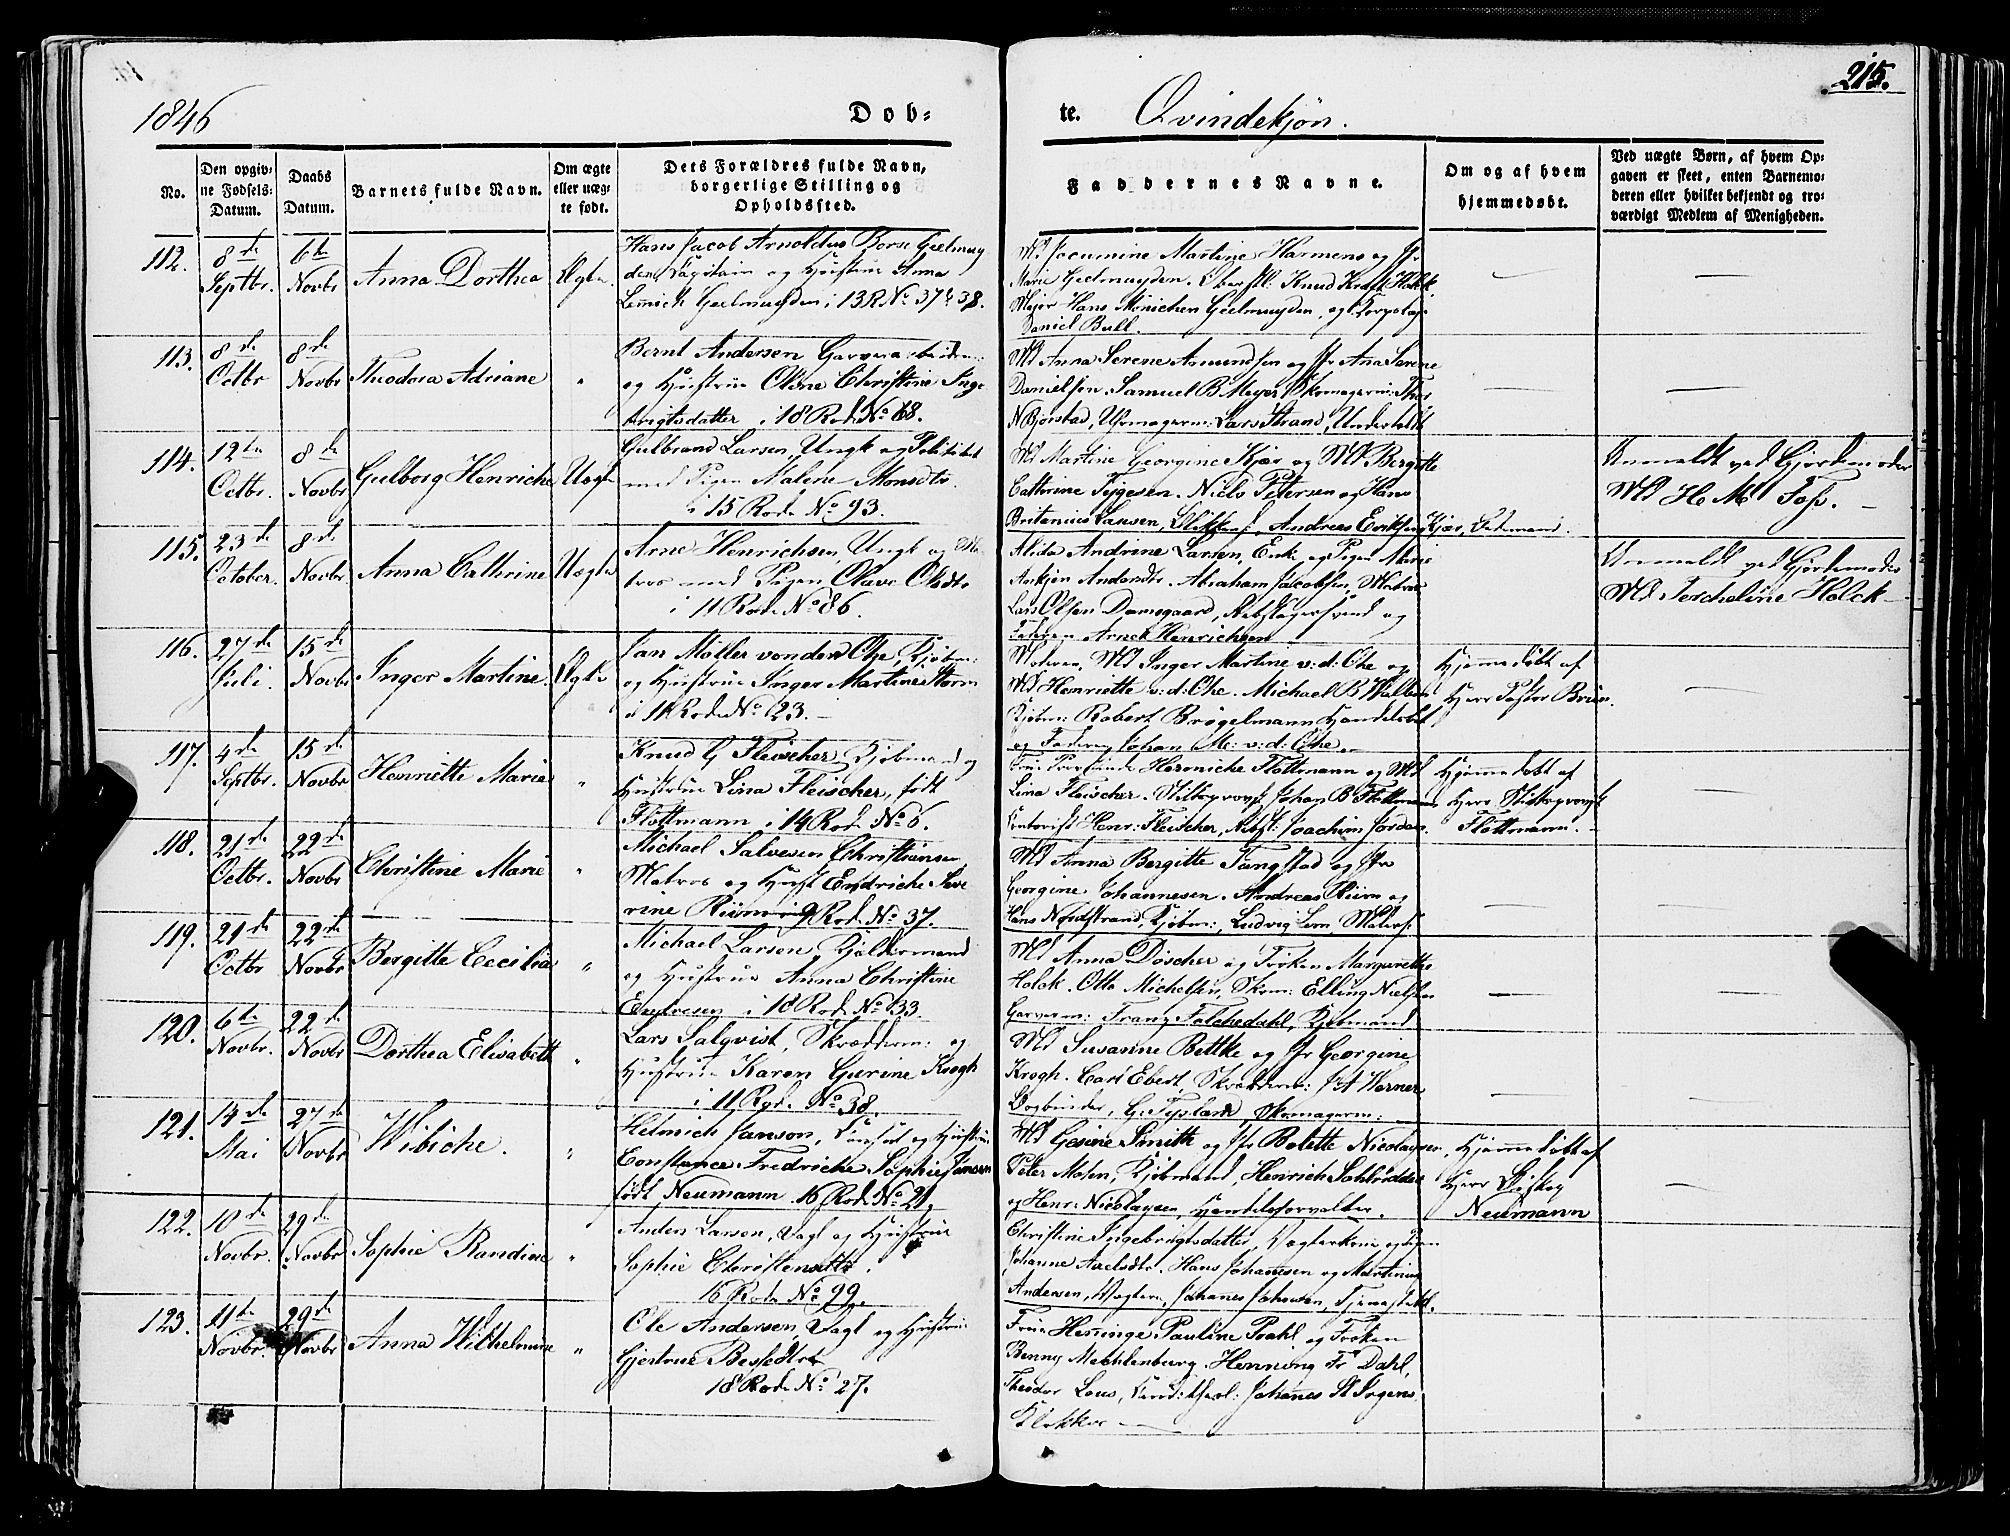 215.
1846 Dob-
te. Qvindekjön.
No.
Den opgiv-
ne Fødsels-
Datum.
Daabs
Datum.
Barnets fulde Navn.
Om ægte
eller uæg-
te født.
Dets Forældres fulde Navn,
borgerlige Stilling og
Opholdssted.
Faddernes Navne.
Om og af hvem
hjemmedøbt.
Ved uægte Børn, af hvem Op-
gaven er skeet, enten Barnemo-
deren eller hvilket bekjendt og tro-
værdigt Medlem af Menigheden.
112. 8de Septbr. 6te Novbr Anna Dorthea Ægte
Hans Jacob Arnoldus Geelmuy
den, Capitain og Hustrue Anna
Geelmuyden i 13 R No 37 & 38.
Md Jocumine Martine Harmens og Jfr
Marie Geelmuyden. Knud Holck
Major Hans Geelmuyden, og
Daniel Bull.
113. 8de Octbr 8de Novbr Theodora Adriane "
Bernt Andersen
og Hustrue Oline Christine Inge
brigtsdatter i 18 Rode No 68.
Md Anna Serene Asmundsen og Jfr Ana Serene
Danielsen. Samuel B Meyer Skomagerm:
N Bjørstad, Uhrmagerm: Lars Strand,
114. 12te Octbr. 8de Novbr Gulborg Henriche Uægte
Gulbrand Larsen, Ungk og Politibet
med Pigen Malene Monsdtr.
i 15 Rode No 93.
Md Martine Georgine Kjær og Md Bergitte
Cathrine Tygesen. Niels Petersen og Hans
Britanius Jansen, Andreas Eriksen Kjær,
Anmeldt ved Gjordemoder
Md H. M. Foss.
115. 23de October. 8de Novbr. Anna Cathrine Uægte
Arne Henrichsen, Ungk og Ma
tros med Pigen Olave Olsdtr
i 11 Rode No 86.
Alida Andrine Larsen, Enke og Pigen Marie
Andersdtr. Abraham Jacobsen, Matros
Lars Olsen Damsgaard, Rebslagersvend og
Faderen Arnet Henrichsen
Anmeldt ved Gjordemoder
Md Torcheline Holck
116. 27de Juli. 15de Novbr Inger Martine. Ægte
Jan Møller von der Ohe, Kjøbm:
og Hustrue Inger Martine Storm
i 11 Rode No 123.
Moderen, Md Inger Martine v: d: Ohe og
Md Henriette v: d: Ohe. Michael B
Kjøbm: Robert Brøgelmann Handelsbet
og Faderen Johan M: v: d: Ohe.
Hjemmedøbt af
Herr Pastor Bruun.
117. 4de Septbr. 15de Novbr Henriette Marie "
Knud G Fleischer, Kjøbmand og
Hustrue Lina Fleischer, født
Flottmann i 14 Rode No 6.
Frue Hermiche Flottmann og Md
Lina Fleischer. Stiftsprovst Johan B Flottmann
Henr: Fleischer, Joachim Jordan.
Hjemmedøbt af
Herr Stiftsprovst
Flottmann.
118. 21de Octbr. 22de Novbr Christine Marie "
Michael Salvesen Christiansen
Matros og Hust Endriche Seve
rine Riim i 9 Rode No 37.
Md Anna Bergitte Tangstad og Jfr
Georgine Johannesen. Andreas Riim og
Hans Nordstrand, Kjøbm:, Ludvig Lem,
119. 21de Octbr 22de Novbr Bergitte Cecilia "
Michael Larsen, Kjeldermand
og Hustrue Anna Christine
Endresen i 18 Rode No 133.
Md Anna Döscher og Frøken Margarethe
Holck. Otto Michelsen, Skom: Elling Nielsen
Garverm: Franz Falchedahl, Kjøbmand.
120. 6te Novbr. 22de Novbr Dorthea Elisabeth "
Lars Salqvist, Skrædderm: og
Hustrue Karen Gurine Krogh
i 11 Rode No 38.
Md Susanne Bettke og Jfr Georgine
Krogh. Carl Ebert, Skrædderm: J A Werner
Bogbinder, G. Tysland, Skomagerm:
121. 14de Mai 27de Novbr Wibiche. "
Helmich Janson, Consul og Hustrue
Constance Fredriche Sophie Janson
født Neumann 16 Rode No 21.
Md Gesine Smitt og Jfr Bolette Nicolaysen.
Peter Mohn, Kjøbmand, Henrich Sohlridder
og Henr: Nicolaysen, Handelsforvalter.
Hjemmedøbt af
Herr Biskop
Neumann
122. 10de Novbr. 29de Novbr Sophie Randine "
Anders Larsen, Vagt og Hustrue
Sophie Christensdtr.
16 Rode No 99.
Christine Ingebrigtsdatter, Vægterkone og Pigen
Johanne Axelsdtr. Hans Johannesen og Martinus
Andersen, Vægtere, Johanes Johnsen,
123. 11te Novbr. 29de Novbr Anna Wilhelmine "
Ole Andersen, Vagt og Hustrue
Gjertrue
18 Rode No 27.
Frue Pauline Dahl og Frøken
Benny Mechlenburg. Henning Fr Dahl,
Theodor Lous, Johanes St Irgens,
Klokker